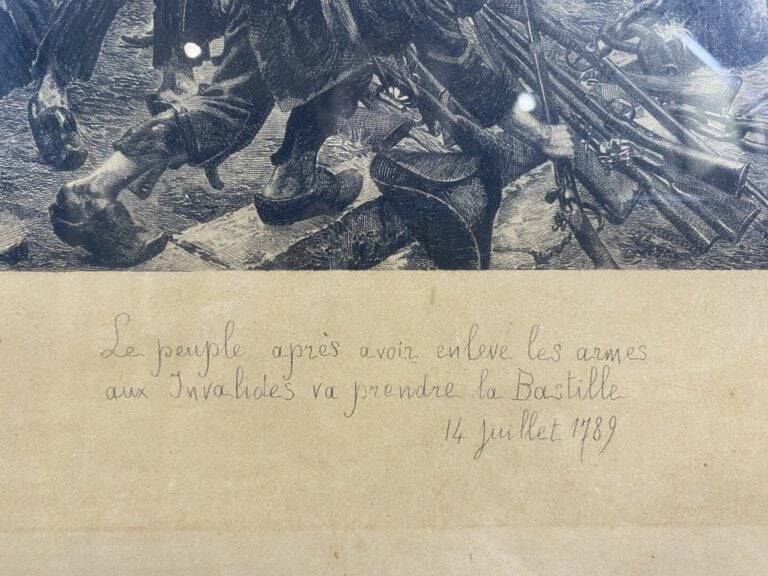 Le peuple après avoir enlevé les armes
aux Invalides va prendre la Bastille
14 juillet 1789